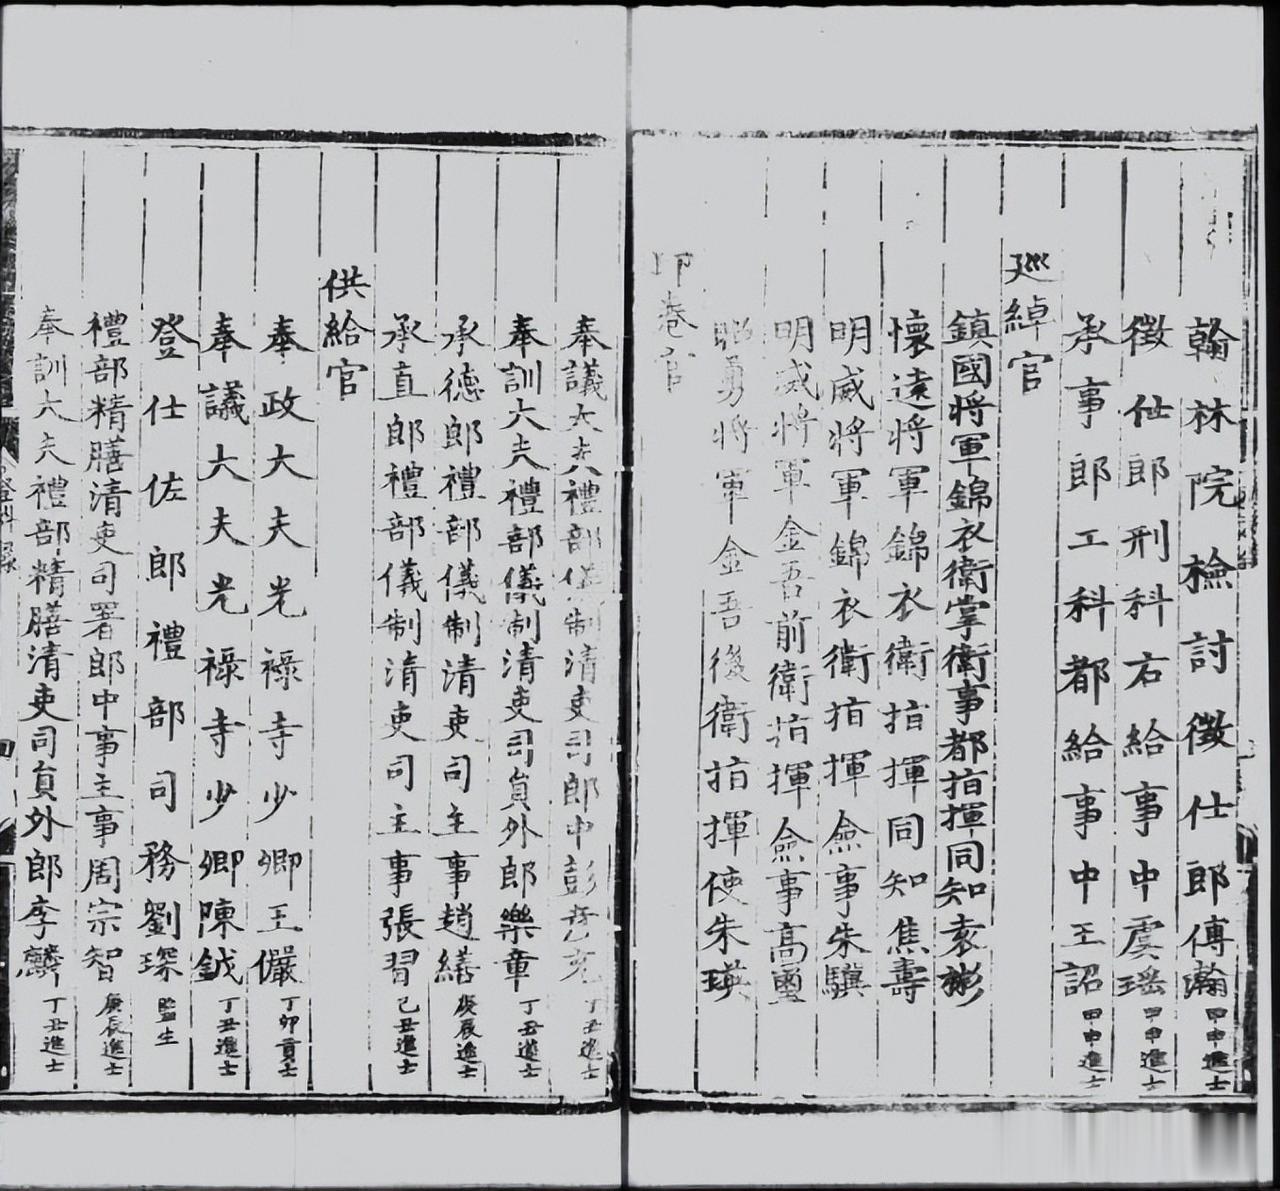 翰林院檢討徵仕郎傅瀚甲申進士
徵仕郎刑科右給事中虞瑶甲申進士
承事郎工科都給事中王詔甲申進士
廵綽官
鎮國將軍錦衣衛掌衛事都指揮同知袁彬
懷遠將軍錦衣衛指揮同知焦壽
明威將軍錦衣衛指揮僉事朱驥
明威將軍金吾前衛指揮僉事高璽
昭勇將軍金吾後衛指揮使朱瑛
印卷官
奉議大夫禮部儀制清吏司郎中彭彥充丁丑進士
奉訓大夫禮部儀制清吏司員外郎樂章丁丑進士
承德郎禮部儀制清吏司主事趙繕庚辰進士
承直郎禮部儀制清吏司主事張習己丑進士
供給官
奉政大夫光祿寺少卿王儼丁卯貢士
奉議大夫光祿寺少卿陳鉞丁丑進士
登仕佐郎禮部司務劉琛監生
禮部精膳清吏司署郎中事主事周宗智庚辰進士
奉訓大夫禮部精膳清吏司員外郎李麟丁丑進士
登科錄